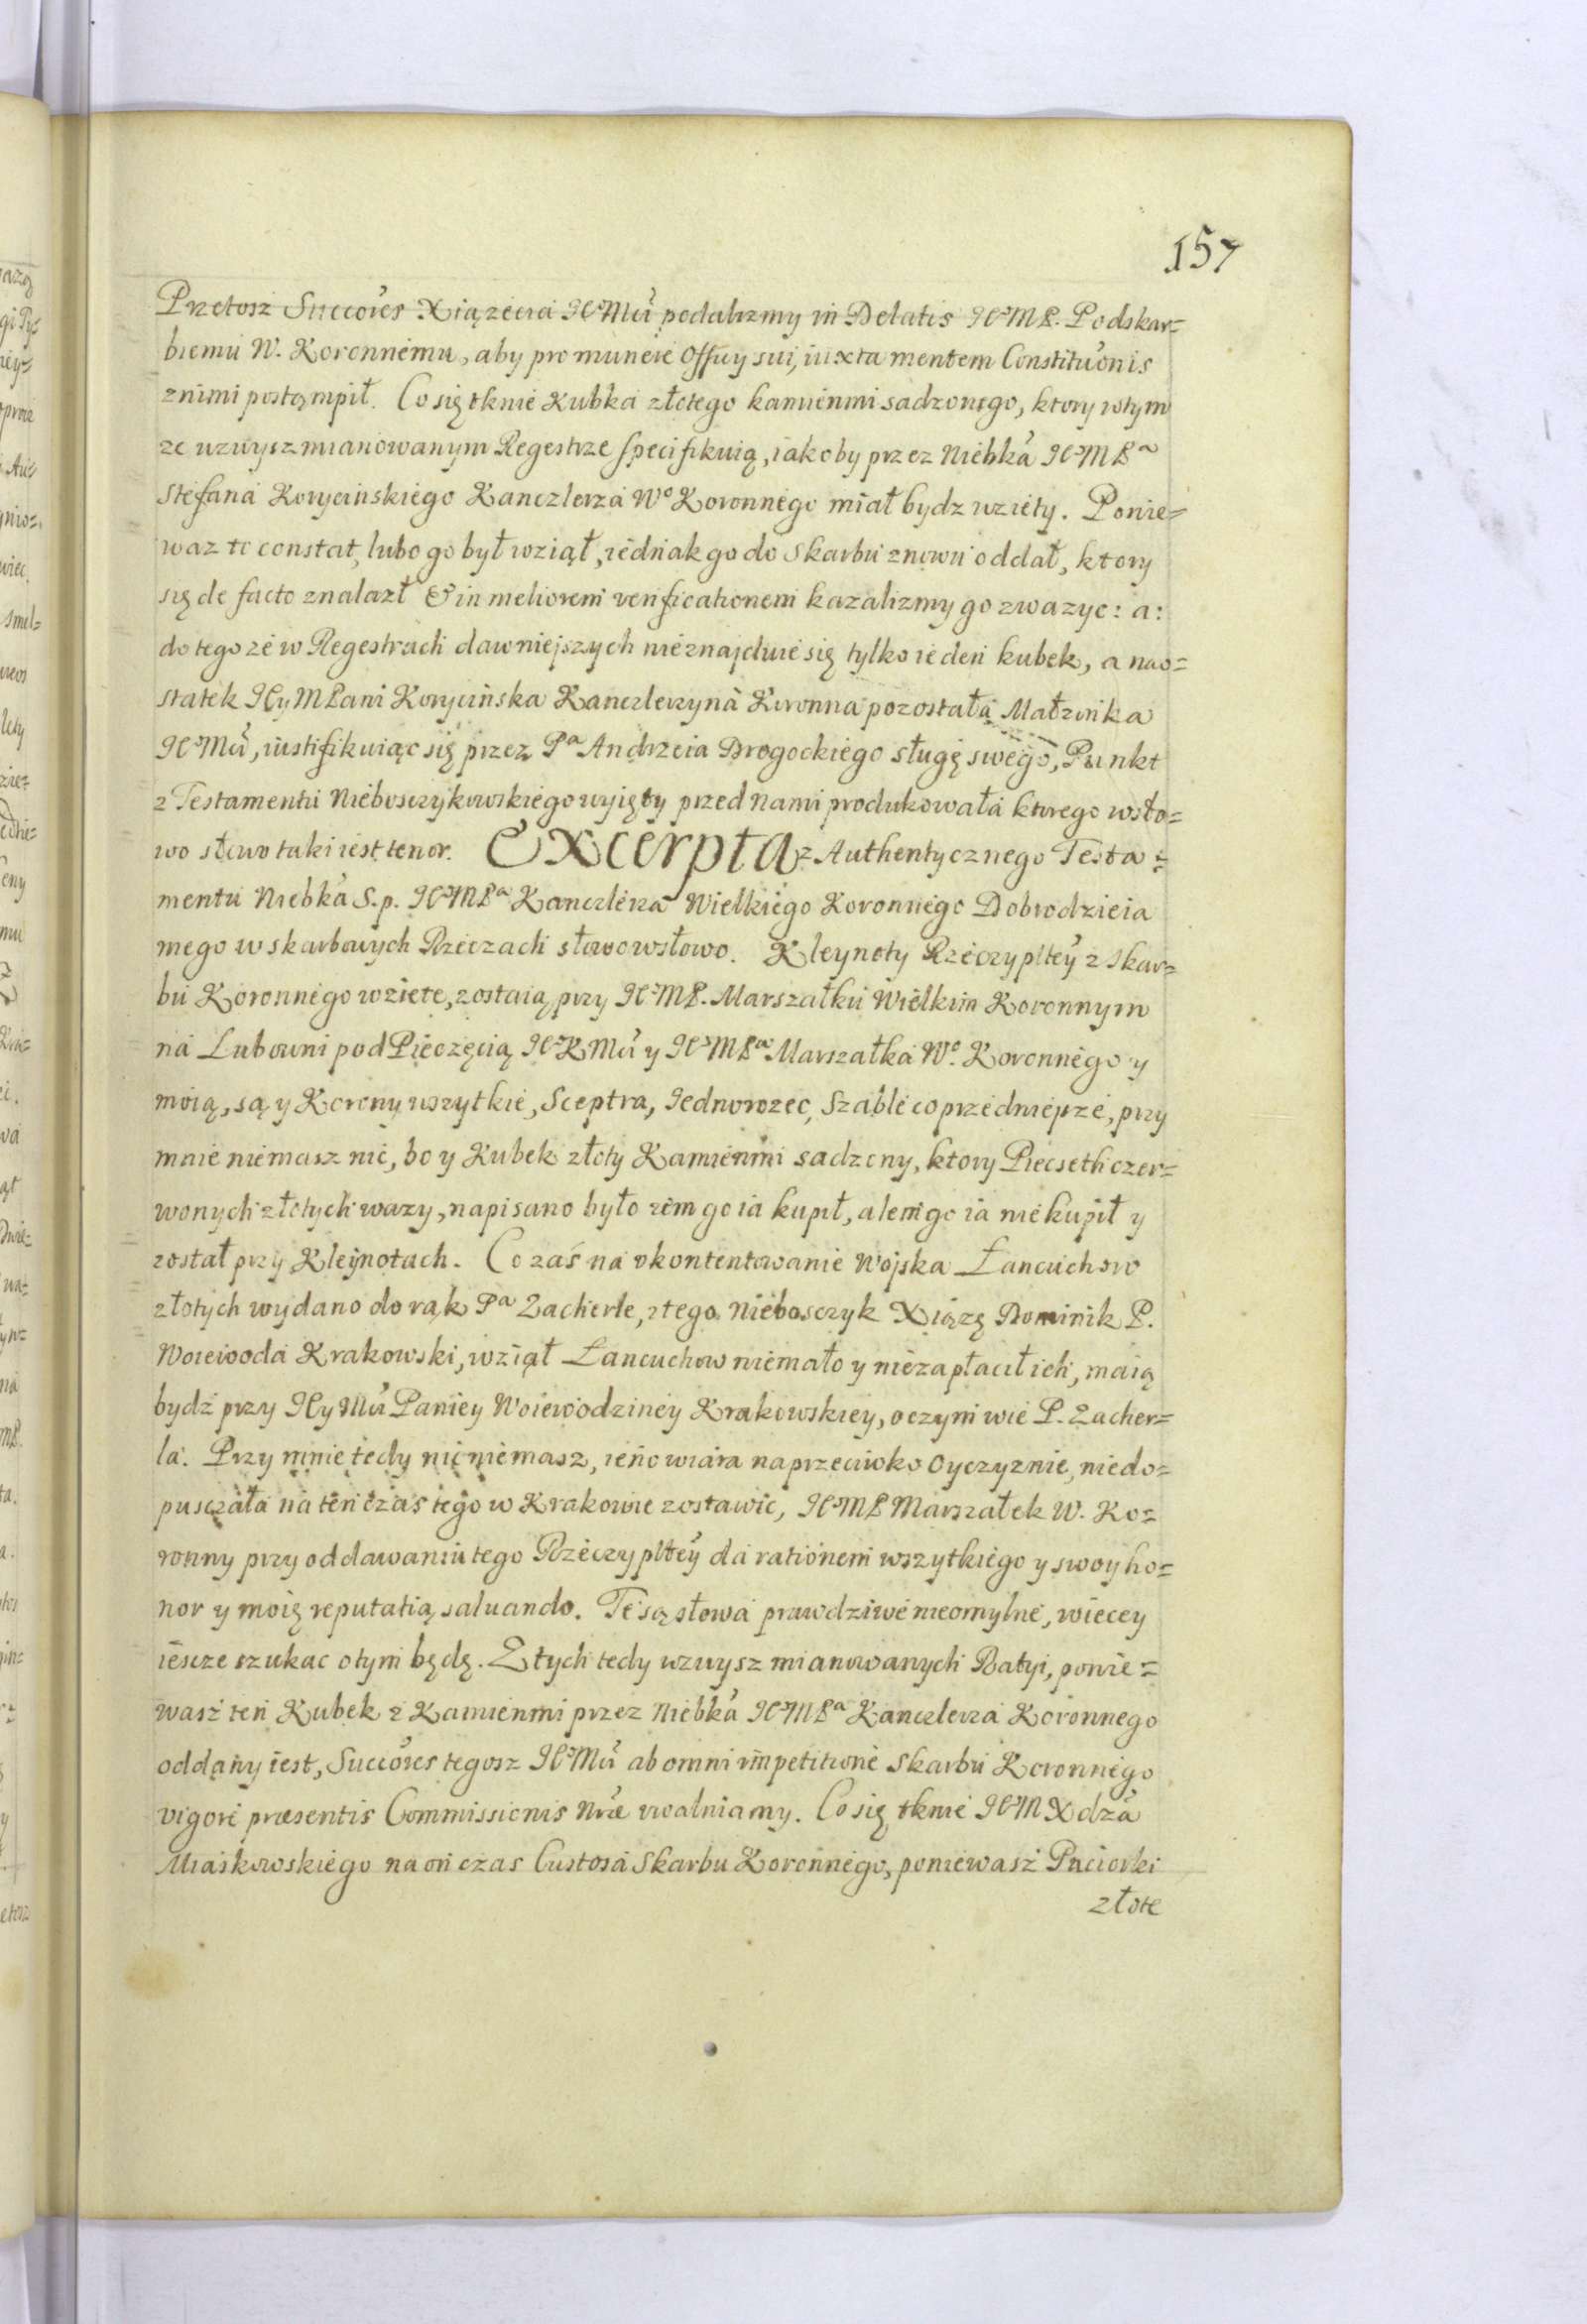 157
Przetosz Succo͠res Xiążecia JE͠Mci podalizmy in Delatis JE͠MP. Podskar=
biemu W. Koronnemu, aby pro munere Officÿ sui, iuxta mentem Constitu͠onis
znimi postąmpił. Co się tknie Kubka złotego kamienmi sadzonego, ktory wtym
ze wzwysz mianowanym Regestrze specifikuią, iakoby przez Niebka͠ JE͠MPa
Stefana Korycinskiego Kanczlerza Wo Koronnego miał bydz wzięty. Ponie=
waz to constat, lubo go był wziął, iednak go do Skarbu znowu oddał, ktory
się de facto znalazł & in meliorem verificationem kazalizmy go zwazyc: a:
do tego ze w Regestrach dawniejszych nieznajduie się tylko ieden kubek, a nao=
statek JEyMPani Korycinska Kanczlerzyna Koronna pozostała Małzonka
JE͠Mci, iustifikuiąc się przez Pa Andrzeia Drogockiego sługę swego, Punkt
z Testamentu Niebosczykowskiego wyięty przed nami produkowała ktorego wsło=
wo słowo taki iest tenor. Excerpta z Authentycznego Testa=
mentu Niebka͠ S.p. JE͠MPa Kanczlerza Wielkiego Koronnego Dobrodzieia
mego w skarbowych Rzeczach słowo wsłowo. Kleynoty Rzeczypltey͠ z Skar=
bu Koronnego wziete, zostaią przy JE͠MP. Marszałku Wielkim Koronnym
na Lubowni pod Pieczęcią JE͠KMci y JE͠MPa Marszałka Wo. Koronnego y
moią, są y Korony wszytkie, Sceptra, Jednorozec, Szable co przedniejsze, przy
mnie niemasz nic, bo y Kubek złoty Kamienmi sadzony, ktory Piecseth czer=
wonych złotych wazy, napisano było zem go ia kupił, alem go ia nie kupił y
został przy Klejnotach. Co zaś na vkontentowanie Wojska Łancuchow
złotych wydano do rąk Pa Zacherle, z tego Niebosczyk Xiązę Dominik P.
Woiewoda Krakowski, wziął Łancuchow niemało y niezapłacił ich, maią
bydź przy JEyMci Paniey Woiewodziney Krakowskiey, o czym wie P. Zacher=
la. Przy mnie tedy nic niemasz, ieno wiara naprzeciwko Oyczyznie, niedo=
pusczała na ten czas tego w Krakowie zostawic, JE͠MP Marszałek W. Ko=
ronny przy oddawaniu tego Rzeczypltey͠ da rationem wszytkiego y swoy ho=
nor y moię reputatią saluando. Te są słowa prawdziwe nieomylne, wiecey
iescze szukac o tym będę. Z tych tedy wzwysz mianowanych Ratyi, ponie=
wasz ten Kubek z Kamienmi przez Niebka͠ JE͠MPa Kanczlerza Koronnego
oddany iest, Succo͠res tegosz JE͠Mci ab omni impetitione Skarbu Koronnego
vigore præsentis Commissionis Nr͠æ vwalniamy. Co się tknie JE͠M Xdza͠
Miaskowskiego na on czas Custosa Skarbu Koronnego, poniewasz Paciorki
złote